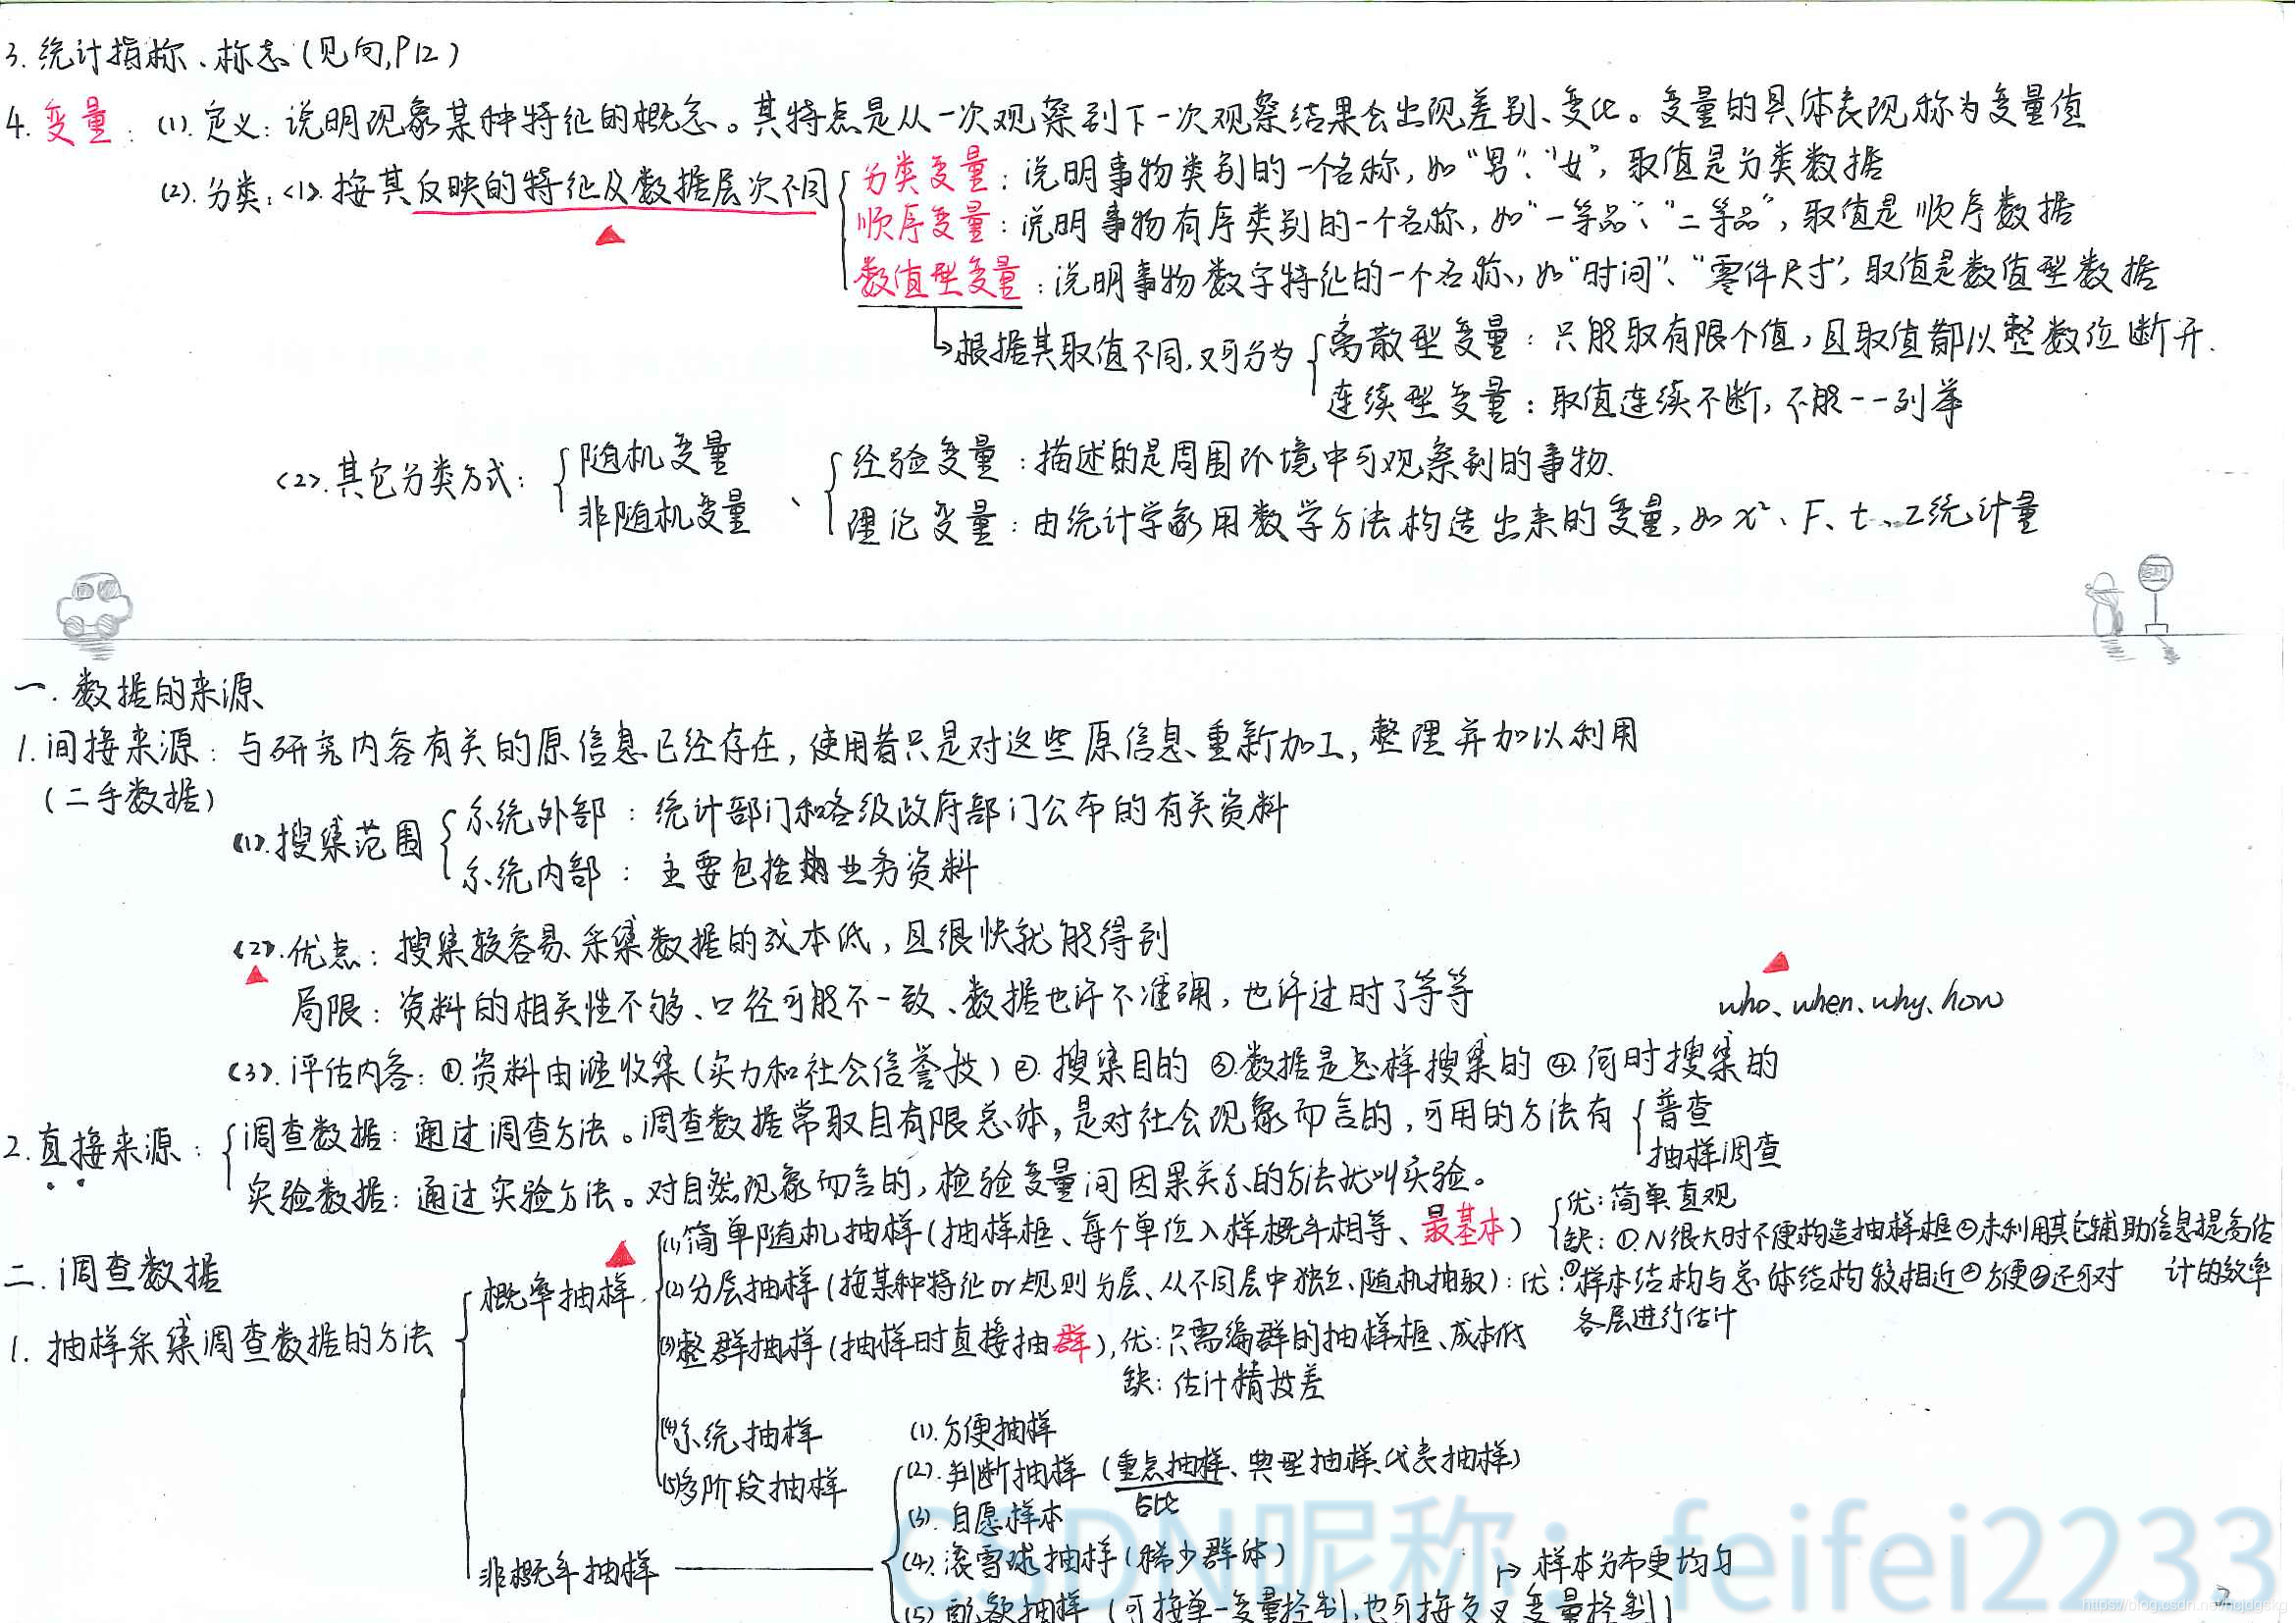 3. 统计指标、标志(见向,P12)
4. 变量：(1). 定义：说明现象某种特征的概念。其特点是从一次观察到下一次观察结果会出现差别、变化。变量的具体表现称为变量值
(2). 分类：<1>. 按其反映的特征及数据层次不同
分类变量：说明事物类别的一个名称，如“男”、“女”，取值是分类数据
顺序变量：说明事物有序类别的一个名称，如“一等品”、“二等品”，取值是顺序数据
数值型变量：说明事物数字特征的一个名称，如“时间”、“零件尺寸”，取值是数值型数据
根据其取值不同,又可分为
离散型变量：只能取有限个值，且取值都以整数位断开.
连续型变量：取值连续不断，不能一一列举
<2>. 其它分类方式：
随机变量
非随机变量
、
经验变量：描述的是周围环境中可观察到的事物.
理论变量：由统计学家用数学方法构造出来的变量，如χ²、F、t、Z统计量
一. 数据的来源
1. 间接来源：与研究内容有关的原信息已经存在，使用者只是对这些原信息重新加工，整理并加以利用
(二手数据)
<1>. 搜集范围
系统外部：统计部门和各级政府部门公布的有关资料
系统内部：主要包括业务资料
<2>. 优点：搜集较容易、采集数据的成本低，且很快就能得到
局限：资料的相关性不够、口径可能不一致、数据也许不准确，也许过时了等等
who、when、why、how
<3>. 评估内容：①.资料由谁收集(实力和社会信誉度) ②. 搜集目的 ③.数据是怎样搜集的 ④.何时搜集的
2. 直接来源：
调查数据：通过调查方法。调查数据常取自有限总体，是对社会现象而言的，可用的方法有
普查
抽样调查
实验数据：通过实验方法。对自然现象而言的，检验变量间因果关系的方法就叫实验。
二. 调查数据
1. 抽样采集调查数据的方法
概率抽样
(1)简单随机抽样(抽样框、每个单位入样概率相等、最基本)
优：简单直观
缺：①.N很大时不便构造抽样框②未利用其它辅助信息提高估
计的效率
(2)分层抽样(按某种特征or规则分层、从不同层中独立、随机抽取)：优：①样本结构与总体结构较相近②方便③还可对
各层进行估计
(3)整群抽样(抽样时直接抽群),优：只需编群的抽样框、成本低
缺：估计精度差
(4)系统抽样
(5)多阶段抽样
非概率抽样
(1).方便抽样
(2).判断抽样 (重点抽样、典型抽样、代表抽样)
占比
(3). 自愿样本
(4).滚雪球抽样(稀少群体)
样本分布更均匀
(5).配额抽样 (可按单一变量控制,也可按交叉变量控制)
CSDN昵称：feifei2233